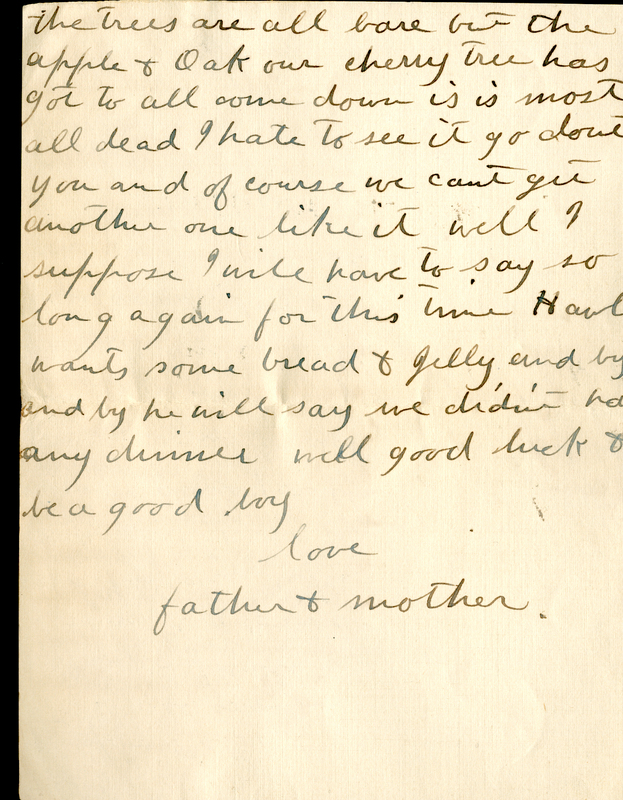 the trees are all bare but the
apple & Oak our cherry tree has
got to all come down is is most
all dead I hate to see it go dont
you and of course we cant get
another one like it well I
suppose I will have to say so
long again for this time
wants some bread & Jelly and by
and by he will say we didn't ha
any dinner well good luck &
be a good boy
love
father & mother.